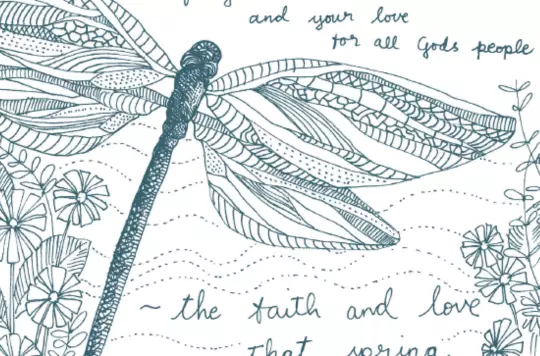 and your love
for all Gods people
~ the faith and love
That spring